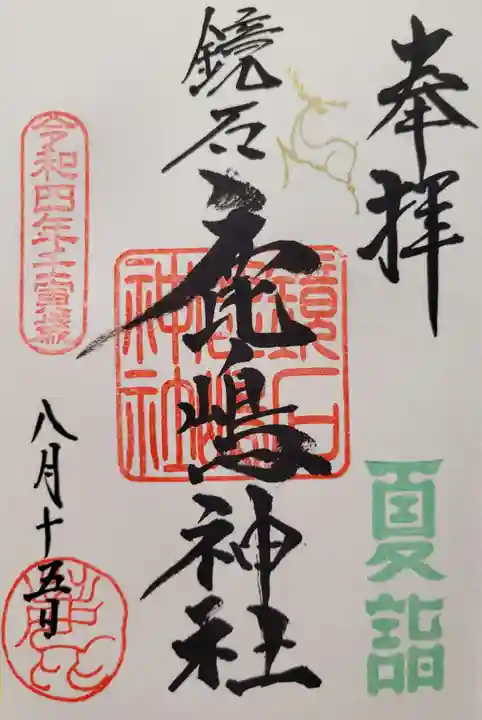 奉拝
夏詣
鏡石
鹿嶋神社
鏡石
鹿嶋
神社
令和四年壬寅歳
八月十五日